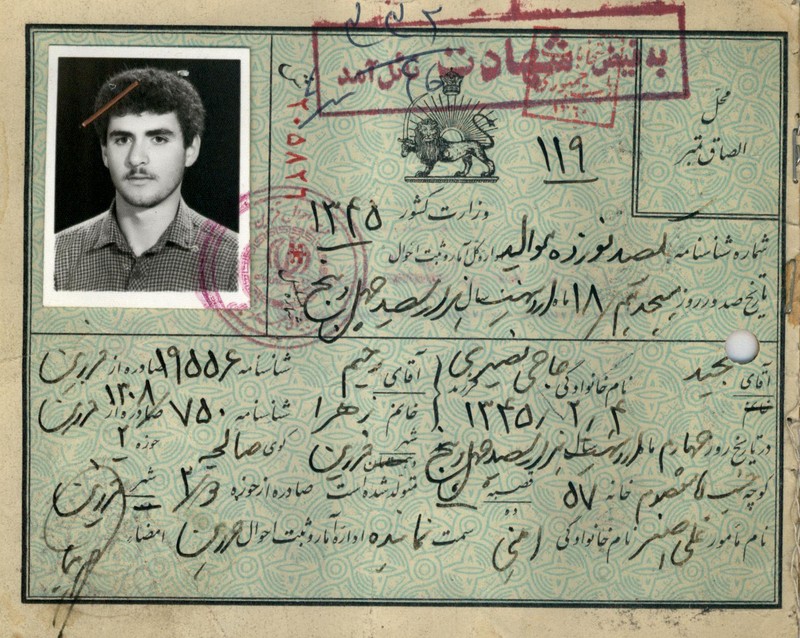 به فیض شهادت نائل آمد
۲۰۵۸۲۶
۱۱۹
محل
الصاق تمبر
وزارت کشور
۱۳۴۵
شماره شناسنامه یکصد نوزده موالید اداره کل آمار و ثبت احوال
تاریخ صدور روز هیجدهم ۱۸ ماه اردیبهشت سال هزار سیصد چهل و پنج
آقای مجید نام خانوادگی حاجی نصیری فرزند آقای رحیم شناسنامه ۱۹۵۵۶ صادره از قزوین
خانم ۱۳۴۵/۲/۴ خانم زهرا شناسنامه ۷۵۰ صادره از قزوین
۱۳۰۸
در تاریخ روز چهارم ماه اردیبهشت هزار سیصد چهل و پنج شهر قزوین کوی صالحیه حوزه ۲
کوچه خانه ۵۷ قصبه متولد شده است صادره از حوزه ۲/۳ شهر قزوین
ده
نام مامور علی اصغر نام خانوادگی سمت نماینده اداره آمار و ثبت احوال قزوین امضاء